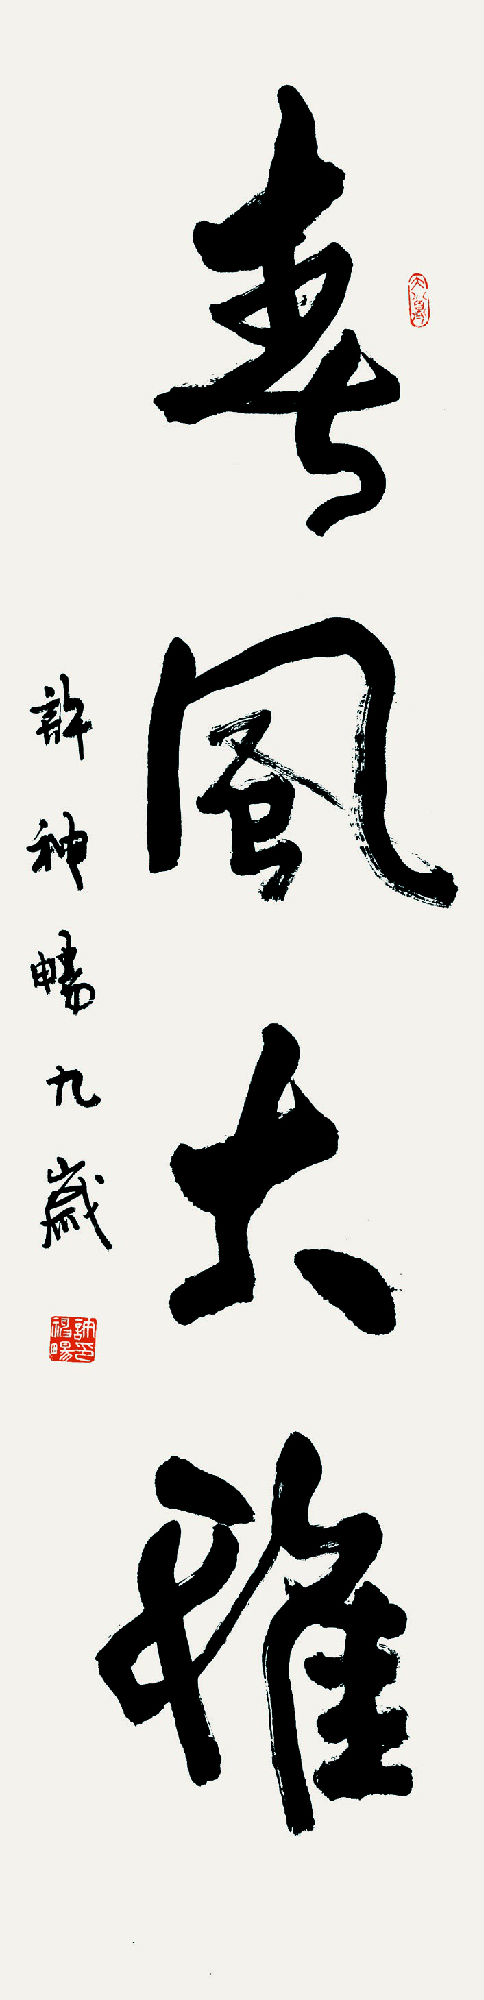 春風大雅
許神暢九歲
許神暢印